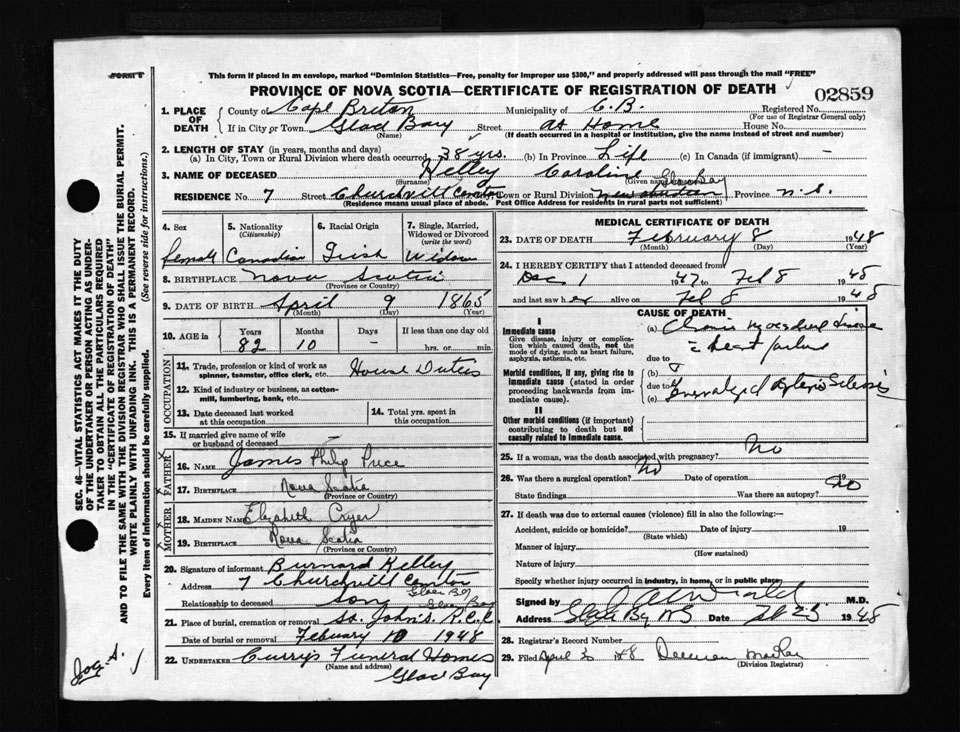 FORM 6
This form if placed in an envelope, marked "Dominion Statistics—Free, penalty for improper use $300," and properly addressed will pass through the mail "FREE"
PROVINCE OF NOVA SCOTIA—CERTIFICATE OF REGISTRATION OF DEATH
02859
1. PLACE OF DEATH
County of Cape Breton Municipality of C.B. Registered No.
(For use of Registrar General only)
If in City or Town Glace Bay Street at Home House No.
(Name) (If death occurred in a hospital or institution, give the name instead of street and number)
2. LENGTH OF STAY (in years, months and days)
(a) In City, Town or Rural Division where death occurred 38 yrs. (b) In Province Life (c) In Canada (if immigrant) –
3. NAME OF DECEASED Kelley Caroline
(Surname) (Given name)
Glace Bay
RESIDENCE No. 7 Street Churchill Town or Rural Division Province N.S.
(Residence means usual place of abode. Post Office Address for residents in rural parts not sufficient)
4. Sex
5. Nationality (Citizenship)
6. Racial Origin
7. Single, Married, Widowed or Divorced (write the word)
Female Canadian Irish Widow
8. BIRTHPLACE Nova Scotia
(Province or Country)
9. DATE OF BIRTH April 9 1865
(Month) (Day) (Year)
10. AGE in
Years Months Days If less than one day old
82 10 – hrs. or min.
OCCUPATION
11. Trade, profession or kind of work as spinner, teamster, office clerk, etc. House Duties
12. Kind of industry or business, as cotton-mill, lumbering, bank, etc.
13. Date deceased last worked at this occupation
14. Total yrs. spent in this occupation
15. If married give name of wife or husband of deceased –
FATHER
16. NAME James Philip Price
17. BIRTHPLACE Nova Scotia
(Province or Country)
MOTHER
18. MAIDEN NAME Elizabeth Cryer
19. BIRTHPLACE Nova Scotia
(Province or Country)
20. Signature of informant Burnard Kelley
Address 7 Churchill
Glace Bay
Relationship to deceased son
Glace Bay
21. Place of burial, cremation or removal St. John's R.C.
Date of burial or removal February 10 1948
22. UNDERTAKER Curry's Funeral Homes
(Name and address)
Glace Bay
MEDICAL CERTIFICATE OF DEATH
23. DATE OF DEATH February 8 1948
(Month) (Day) (Year)
24. I HEREBY CERTIFY that I attended deceased from
Dec 1 1947 Feb 8 1948
and last saw her alive on Feb 8 1948
CAUSE OF DEATH
I
Immediate cause
Give disease, injury or complication which caused death, not the mode of dying, such as heart failure, asphyxia, asthenia, etc.
(a) Chronic myocardial disease
heart failure
due to
Morbid conditions, if any, giving rise to immediate cause (stated in order proceeding backwards from immediate cause).
(b)
due to
(c) Generalized
II
Other morbid conditions (if important) contributing to death but not causally related to immediate cause.
25. If a woman, was the death associated with pregnancy? No
26. Was there a surgical operation? No Date of operation 19
State findings Was there an autopsy? No
27. If death was due to external causes (violence) fill in also the following:—
Accident, suicide or homicide? Date of injury 19
(State which)
Manner of injury
(How sustained)
Nature of injury
Specify whether injury occurred in industry, in home, or in public place
Signed by M.D.
Address Glace Bay NS Date 1948
28. Registrar's Record Number
29. Filed April 3 1948
(Division Registrar)
SEC. 46—VITAL STATISTICS ACT MAKES IT THE DUTY
OF THE UNDERTAKER OR PERSON ACTING AS UNDER-
TAKER TO OBTAIN ALL THE PARTICULARS REQUIRED
IN THE "CERTIFICATE OF REGISTRATION OF DEATH"
AND TO FILE THE SAME WITH THE DIVISION REGISTRAR WHO SHALL ISSUE THE BURIAL PERMIT.
WRITE PLAINLY WITH UNFADING INK. THIS IS A PERMANENT RECORD.
Every item of information should be carefully supplied. (See reverse side for instructions.)